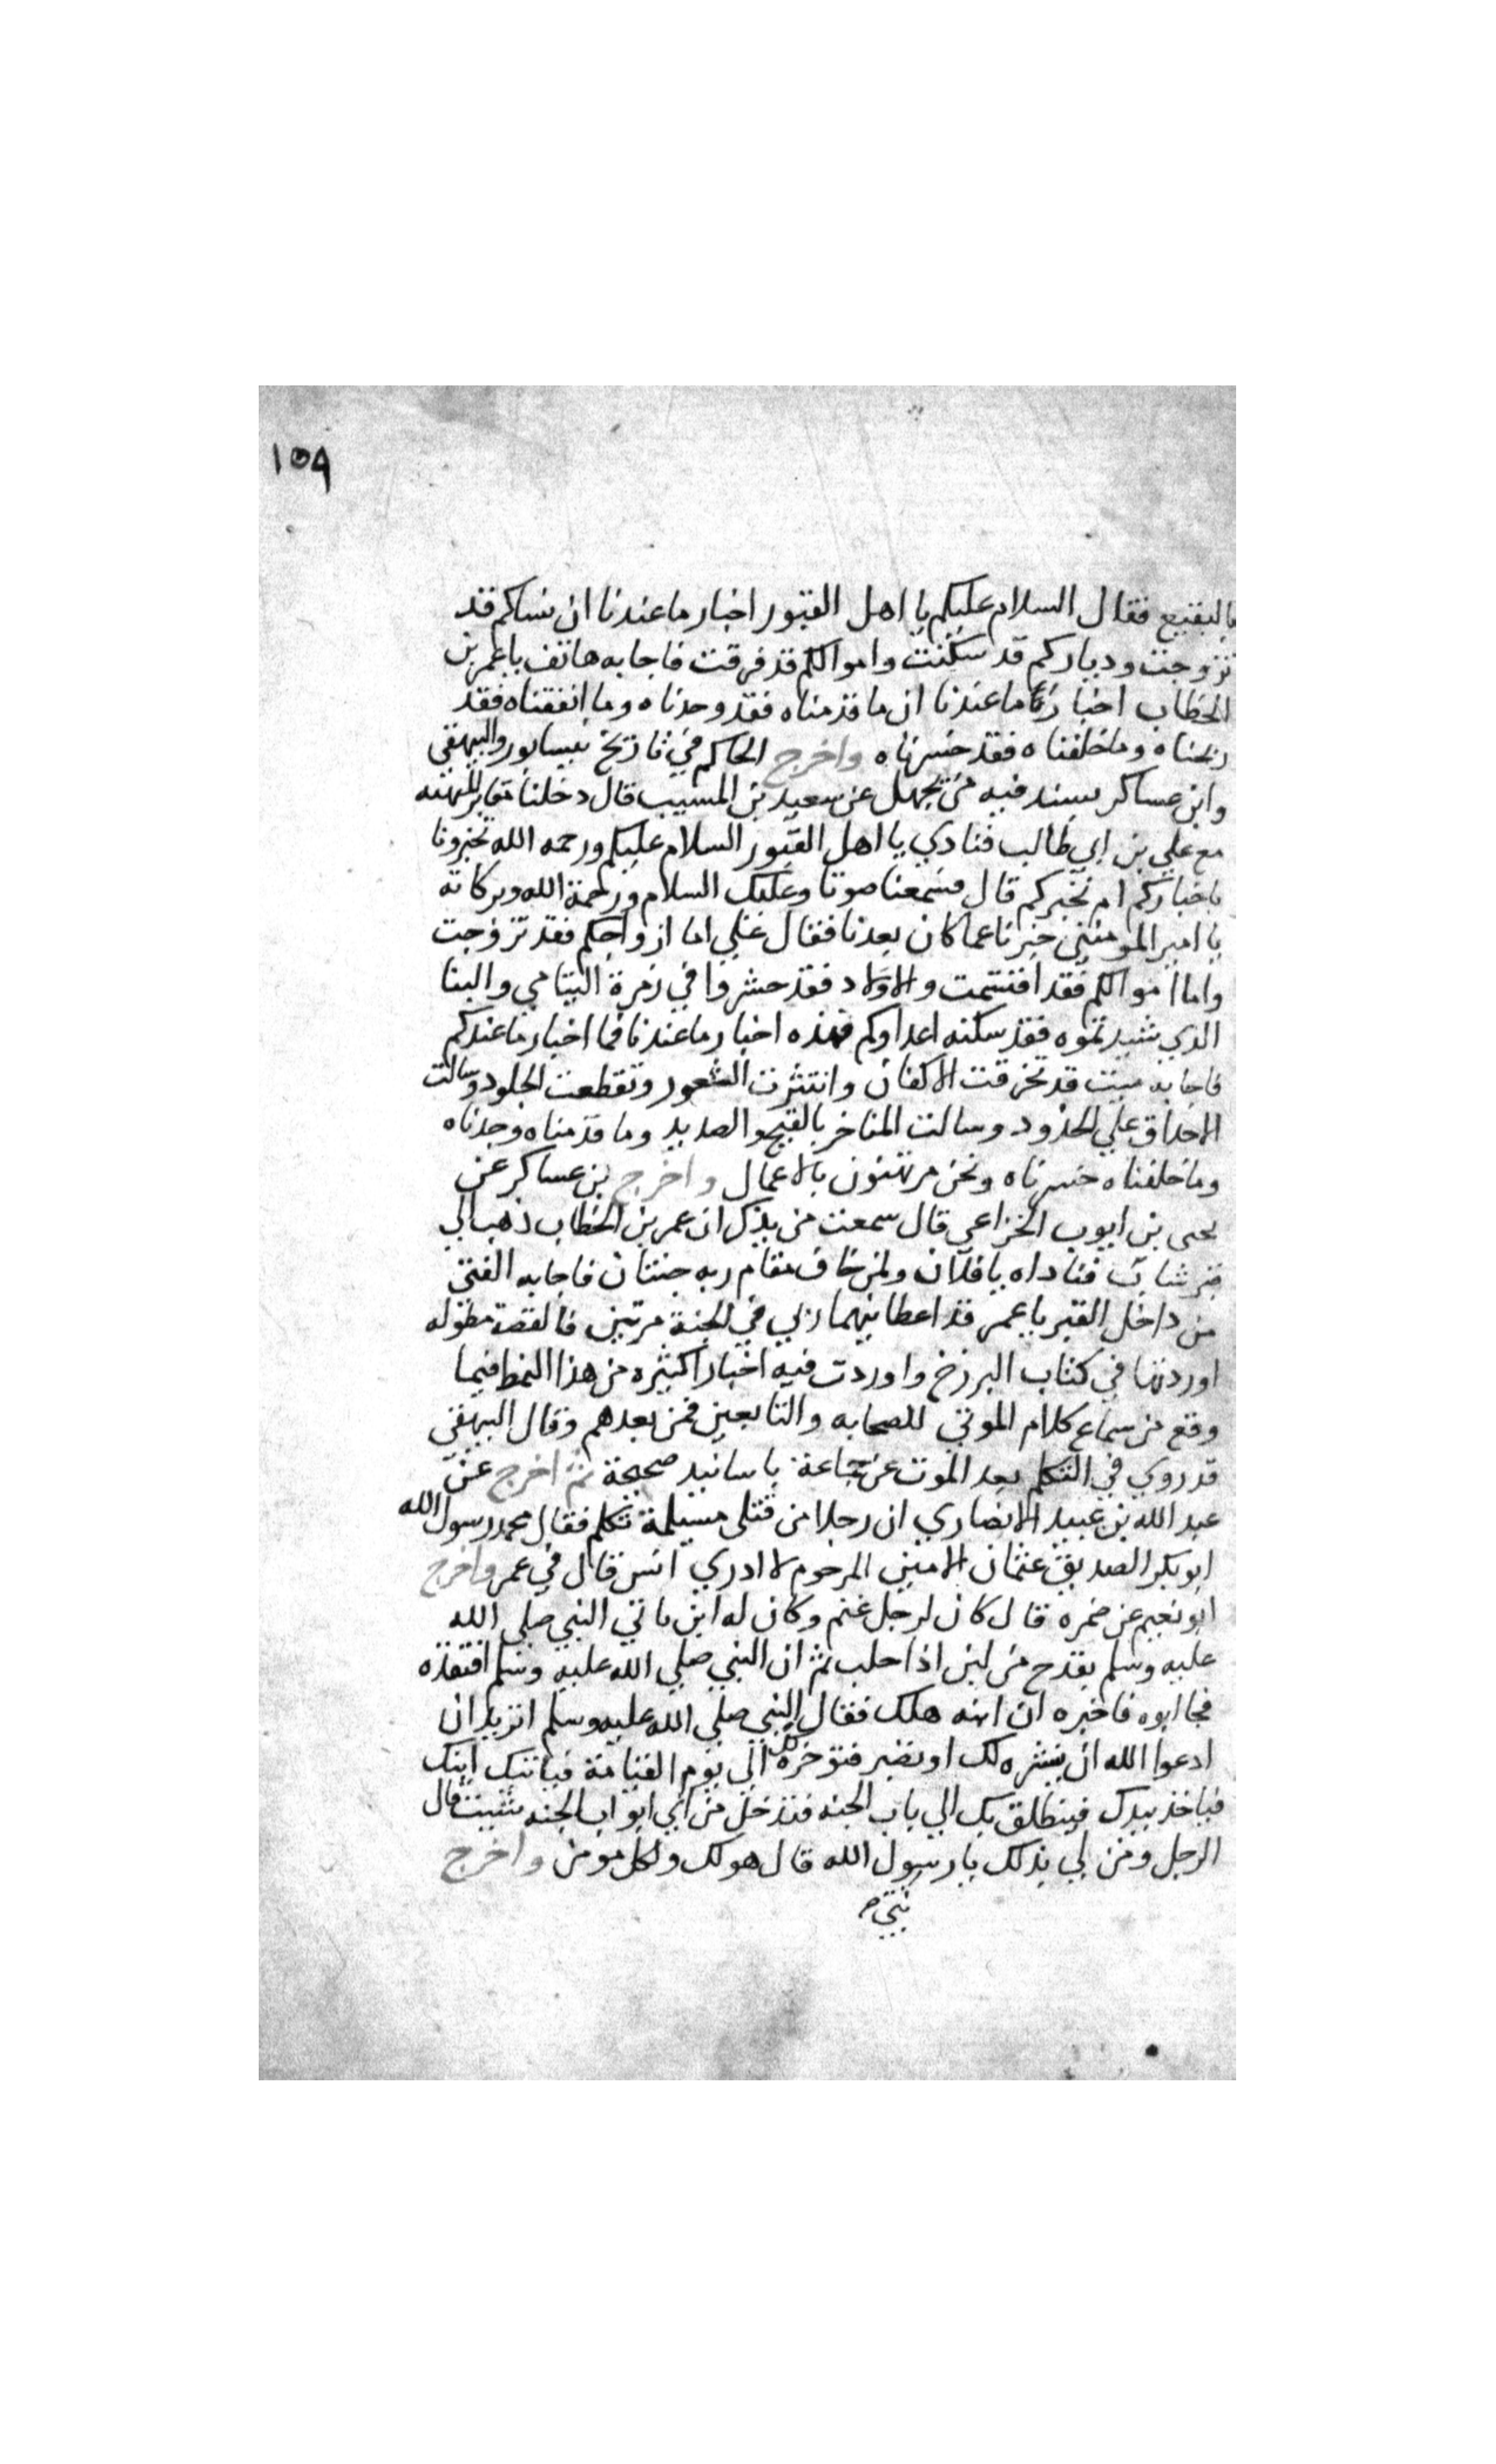 ١٥٩
بالبقيع فقال السلام عليكم يا اهل القبور اخبار ما عندنا ان نساكم قد
تزوجت ودياركم قد سكنت واموالكم قد فرقت فاجابه هاتف يا عمر بن
الخطاب اخبار ما عندنا ان ما قدمناه فقد وجدناه وما انفقناه فقد
ربحناه وما خلفناه فقد خسرناه واخرج الحاكم في تاريخ نيسابور والبيهقي
وابن عساكر بسند فيه من يجهل عن سعيد بن المسيب قال دخلنا مقابر المدينه
مع علي بن ابي طالب فنادي يا اهل القبور السلام عليكم ورحمه الله تخبرونا
باخباركم ام نخبركم قال فسمعنا صوتا وعليك السلام ورحمة الله وبركاته
يا امير المومنين خبرنا عما كان بعدنا فقال علي اما ازواجكم فقد تزوجت
واما اموالكم فقد اقتسمت والاولاد فقد حشروا في زمرة اليتامي والبنا
الذي شيدتموه فقد سكنه اعداوكم فهذه اخبار ما عندنا فما اخبار ما عندكم
فاجابه ميت قد تخرقت الاكفان وانتثرت الشعور وتقطعت الجلود وسالت
الاحداق علي الخدود وسالت المناخر بالقيح والصديد وما قدمناه وجدناه
وما خلفناه خسرناه ونحن مرتهنون بالاعمال واخرج بن عساكر عن
يحيى بن ايوب الخزاعي قال سمعت من يذكر ان عمر بن الخطاب ذهب الي
قبر شاب فناداه يا فلان ولمن خاف مقام ربه جنتان فاجابه الفتى
من داخل القبر يا عمر قد اعطانيهما ربي في الجنة مرتين فالقصة مطوله
اوردتها في كتاب البرزخ واوردت فيه اخبارا كثيره من هذا النمط فيما
وقع من سماع كلام الموتي للصحابه والتابعين فمن بعدهم وقال البيهقي
قد روي في التكلم بعد الموت عن جماعة باسانيد صحيحة ثم اخرج عن
عبد الله بن عبيد الانصاري ان رجلا من قتلى مسيلمة تكلم فقال محمد رسول الله
ابو بكر الصديق عثمان الامين المرحوم لا ادري انس قال في عمر واخرج
ابو نعيم عن ضمره قال كان لرجل غنم وكان له ابن ياتي النبي صلي الله
عليه وسلم بقدح من لبن اذا حلب ثم ان النبي صلي الله عليه وسلم افتقده
فجا ابوه فاخبره ان ابنه هلك فقال النبي صلي الله عليه وسلم اتريد ان
ادعوا الله ان ينشره لك او تصبر فتوخره لك الي يوم القيامة فياتيك ابنك
فياخذ بيدك فينطلق بك الي باب الجنه فتدخل من اي ابواب الجنه شيت قال
الرجل ومن لي بذلك يا رسول الله قال هو لك ولكل مومن واخرج